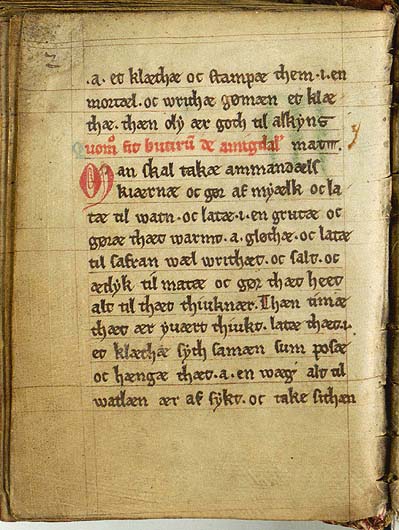 .a. et klæthæ oc stampæ them .i. en
mortæl. oc writhæ gømæn et klæ
thæ. thæn oly ær goth til alskyns
Quomodo fit butirum de amigdalis mat
Man skal takæ ammandæls
kiærnæ oc gør af myælk oc la
tæ til watn. oc latæ .i. en grutæ oc
gøræ thæt warmt .a. gløthæ. oc latæ
til safran wæl writhæt. oc salt. oc
ædyk til matæ oc gør thæt heet
alt til thæt thiuknær. Thæn timæ
thæt ær yuært thiukt. latæ thæt .i.
et klæthæ syth samæn sum posæ
oc hængæ thæt .a. en wæg alt til
watlæn ær af sykt. oc take sithæn